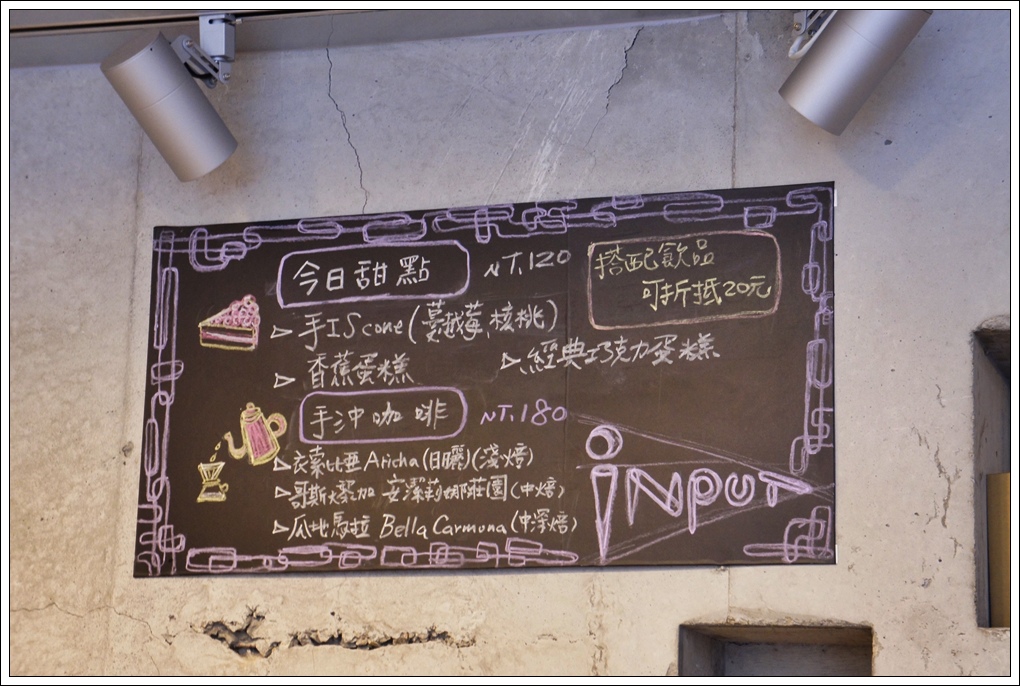 今日甜點 NT.120
搭配飲品
可折抵20元
手工Scone(蔓越莓,核桃)
香蕉蛋糕
經典巧克力蛋糕
手沖咖啡 NT.180
衣索比亞 Aricha (日曬)(淺焙)
哥斯大黎加 安潔莉娜莊園 (中焙)
瓜地馬拉 Bella Carmona (中深焙)
iNPUT